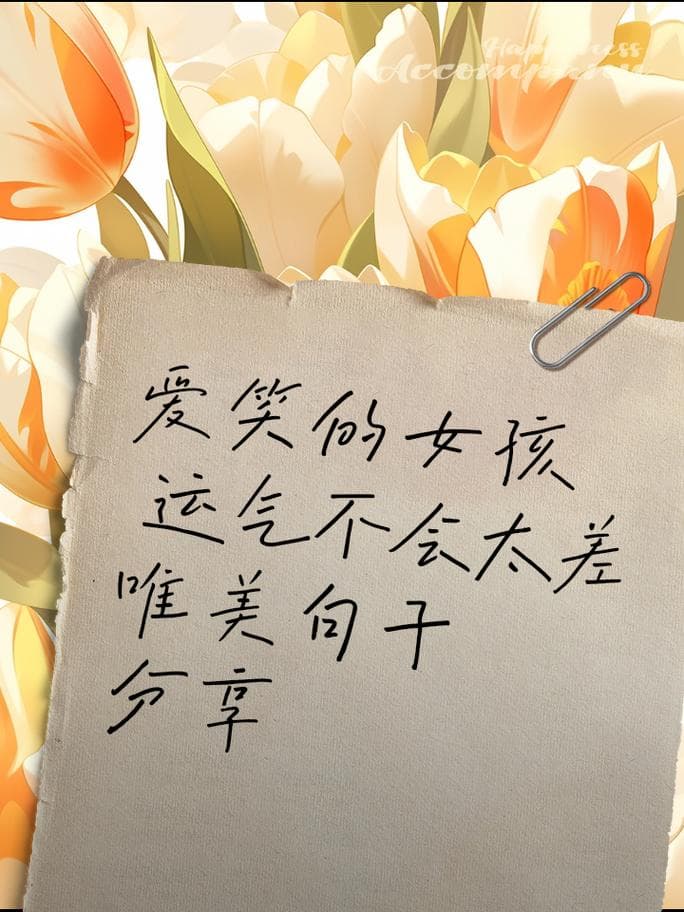 Happiness
Accompany
爱笑的女孩
运气不会太差
唯美句子
分享